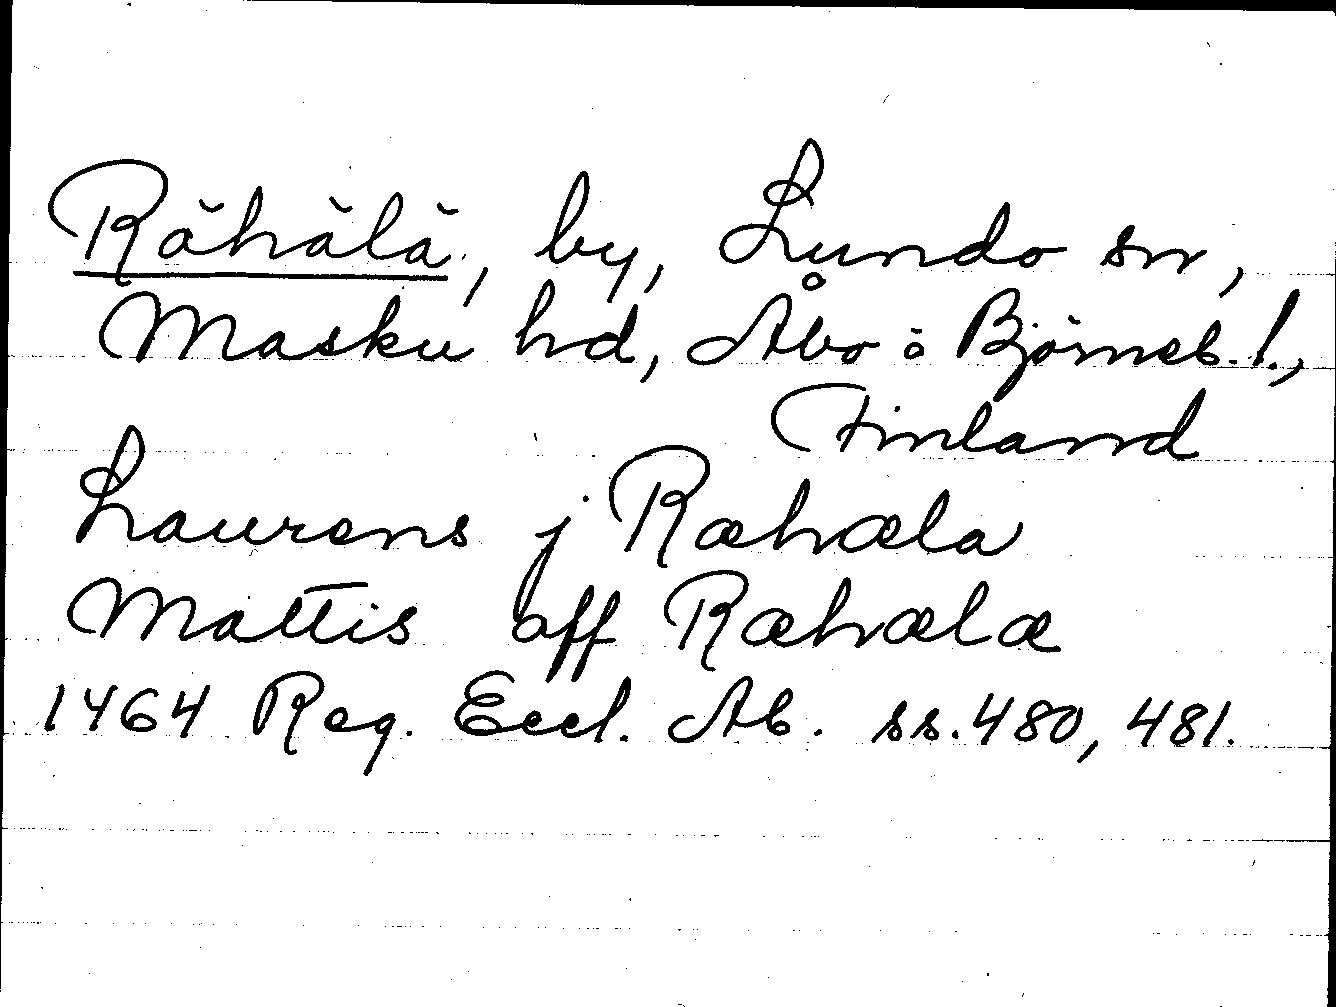 Rähälä, by, Lundo sn,
Masku hd, Åbo o Björneb. l.,
Finland
Laurens j Ræhæla
Mattis aff Ræhælæ
1464 Reg. Eccl. Ab. ss. 480, 481.